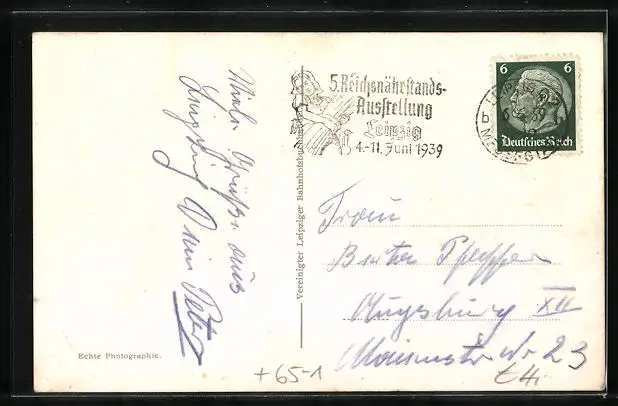 Viele Grüße aus
Leipzig Dein Peter
Echte Photographie.
Vereinigter Leipziger Bahnhofsbuchhandel
5. Reichsnährstands-
Ausstellung
Leipzig
4.-11. Juni 1939
6 6
Deutsches Reich
LEIPZIG
b
Frau
Pfeffer
Augsburg XII
Nr 23
+ 65-1